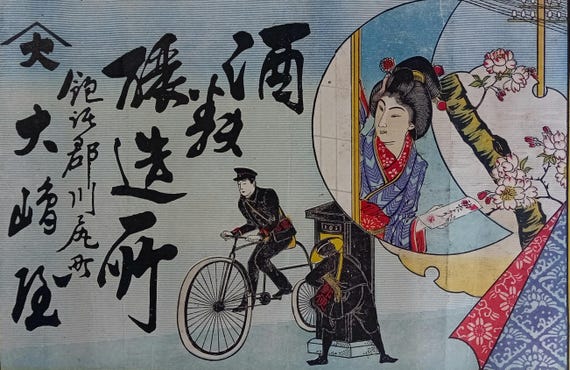 酒類
醸造所
飽託郡川尻町
大
大嶋屋